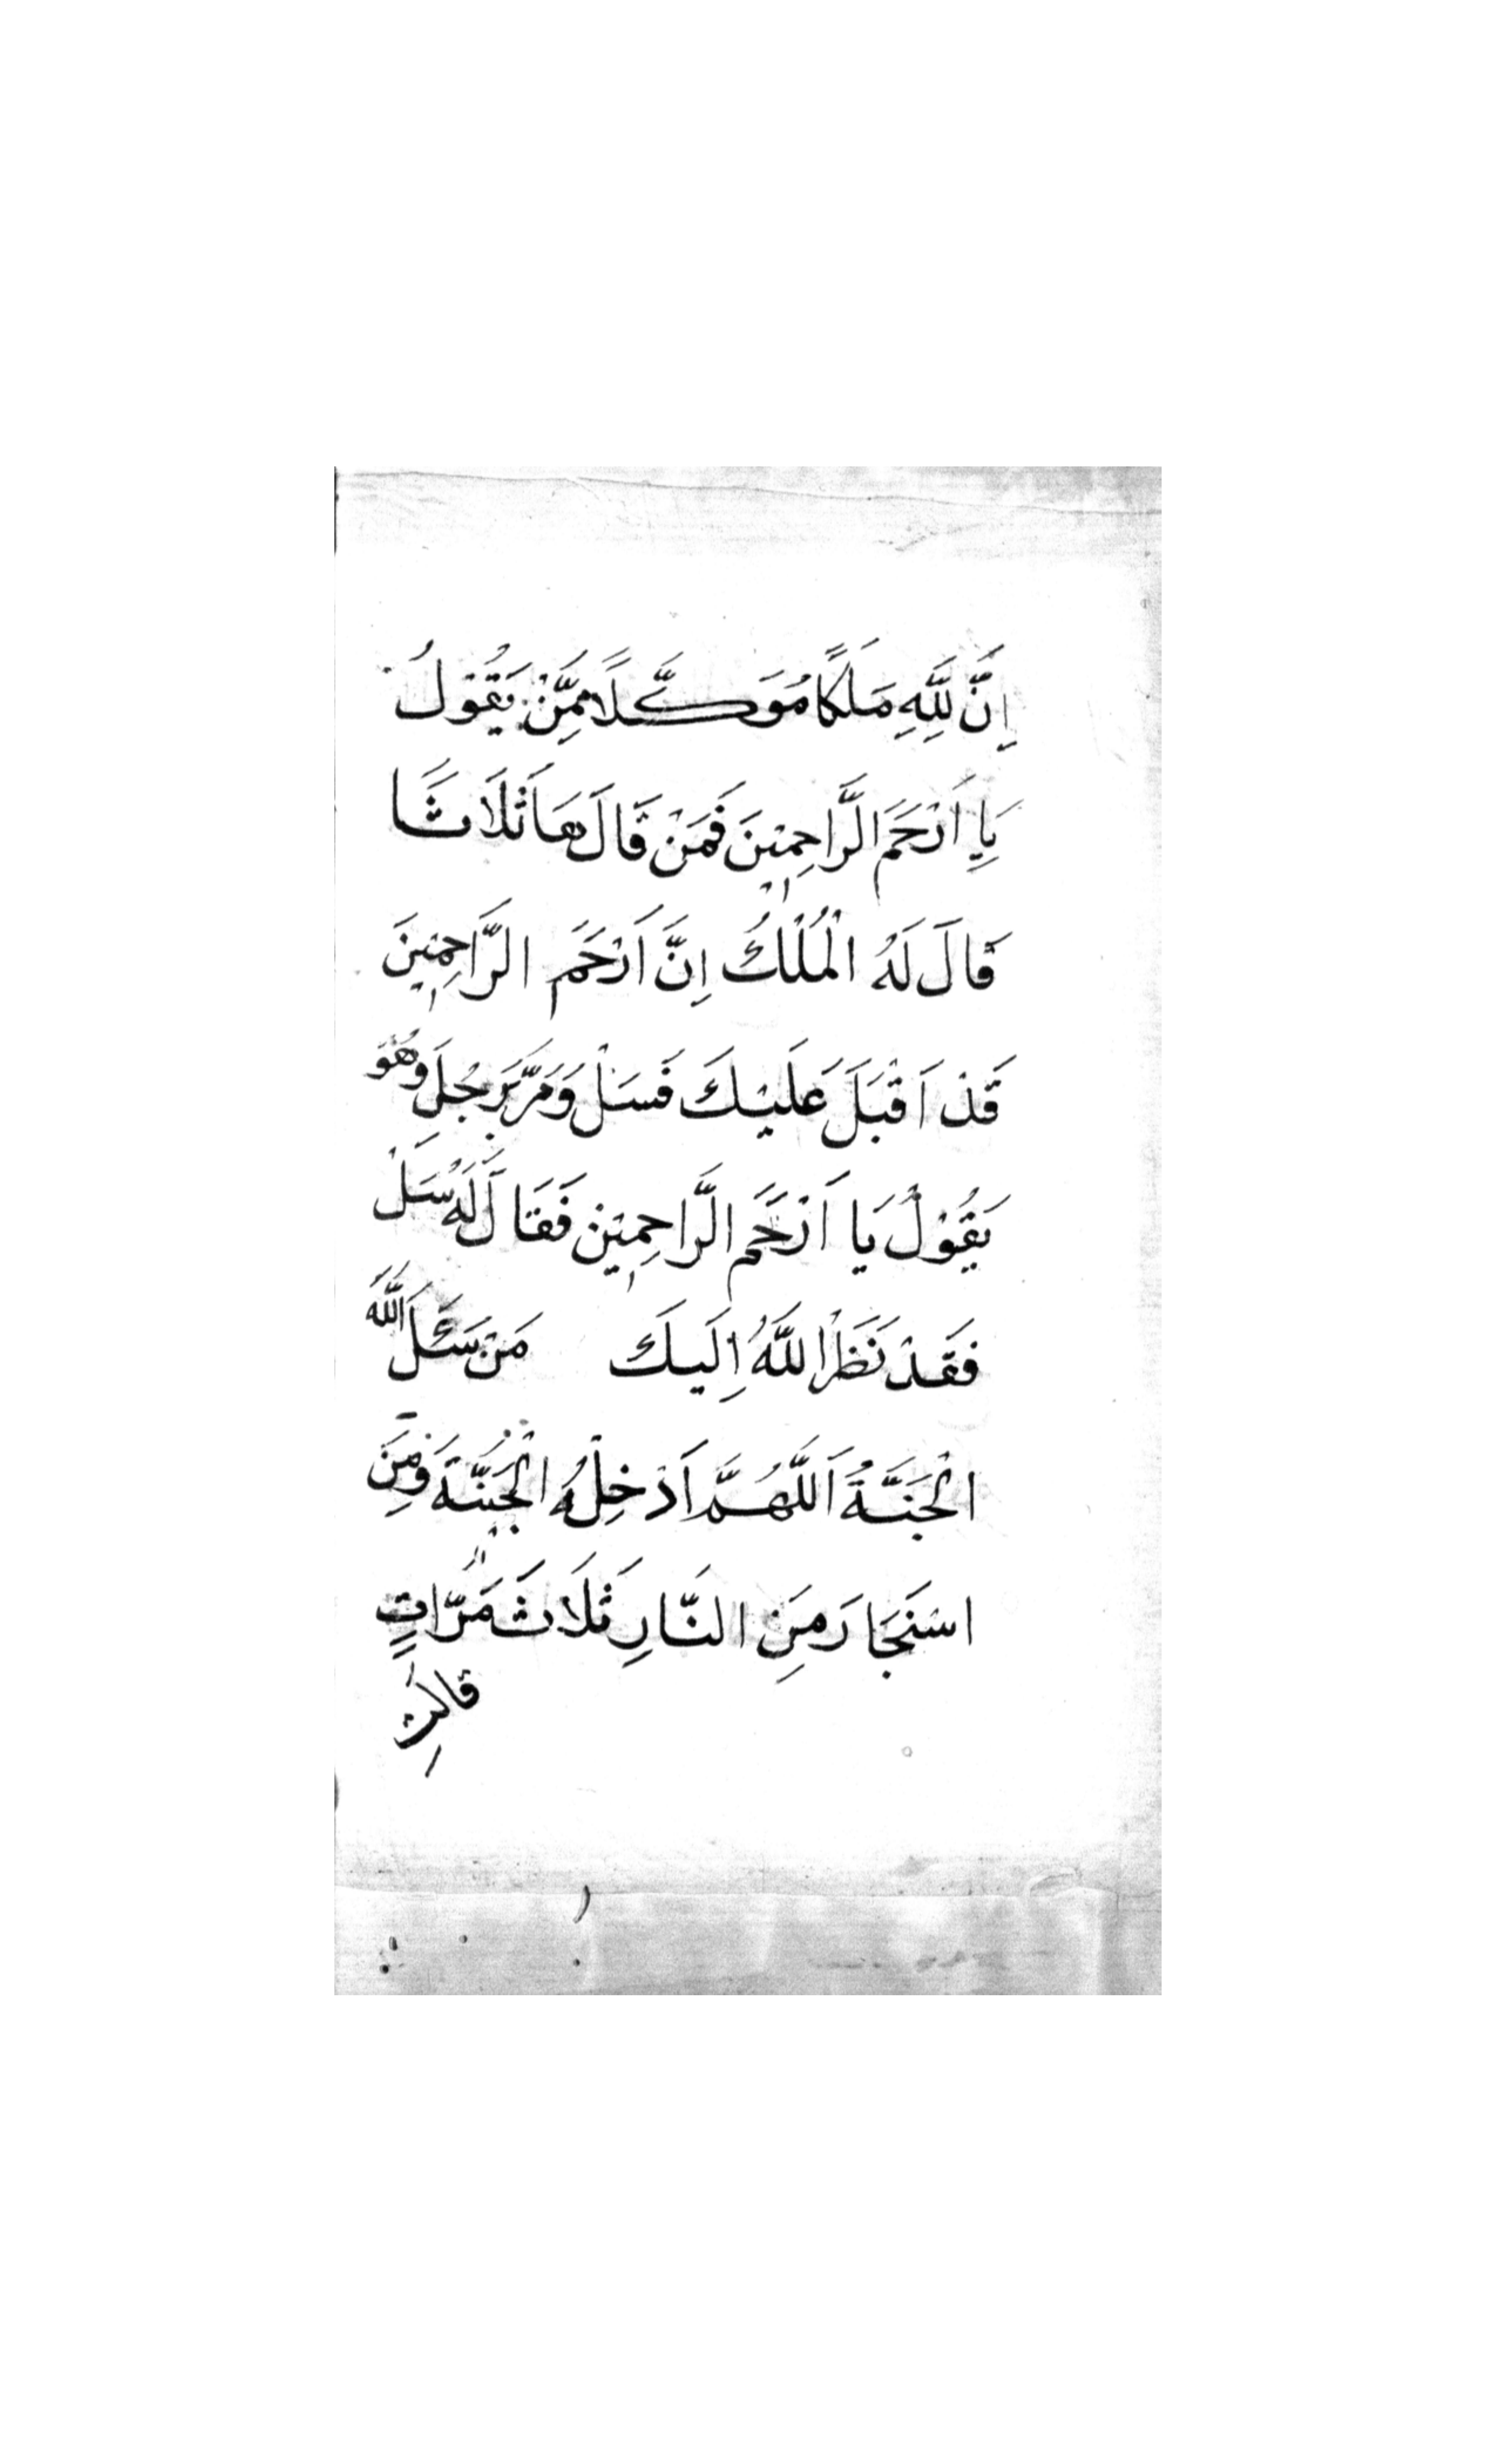 اِنَّ لِلَّهِ مَلَكًا مُوَكَّلًا مِمَّنْ يَقُوْلُ
يَا اَرْحَمَ الرَّاحِمِيْنَ فَمَنْ قَالَهَا ثَلَاثًا
قَالَ لَهُ الْمُلْكُ اِنَّ اَرْحَمَ الرَّاحِمِيْنَ
قَدْ اَقْبَلَ عَلَيْكَ فَسَلْ وَمَرَّ بَرَجُلٍ وَهُوَ
يَقُوْلُ يَا اَرْحَمَ الرَّاحِمِيْنَ فَقَالَ لَهُ سَلْ
فَقَدْ نَظَرَ اللَّهُ اِلَيكَ مَنْ سَئَلَ اللَّهَ
الْجَنَّةُ اَللَّهُمَّ اَدْخِلْهُ الْجَنَّةَ وَمِنَ
اسْتَجَارَ مِنَ النَّارِ ثَلَاثَ مَرَّاتٍ
قالت